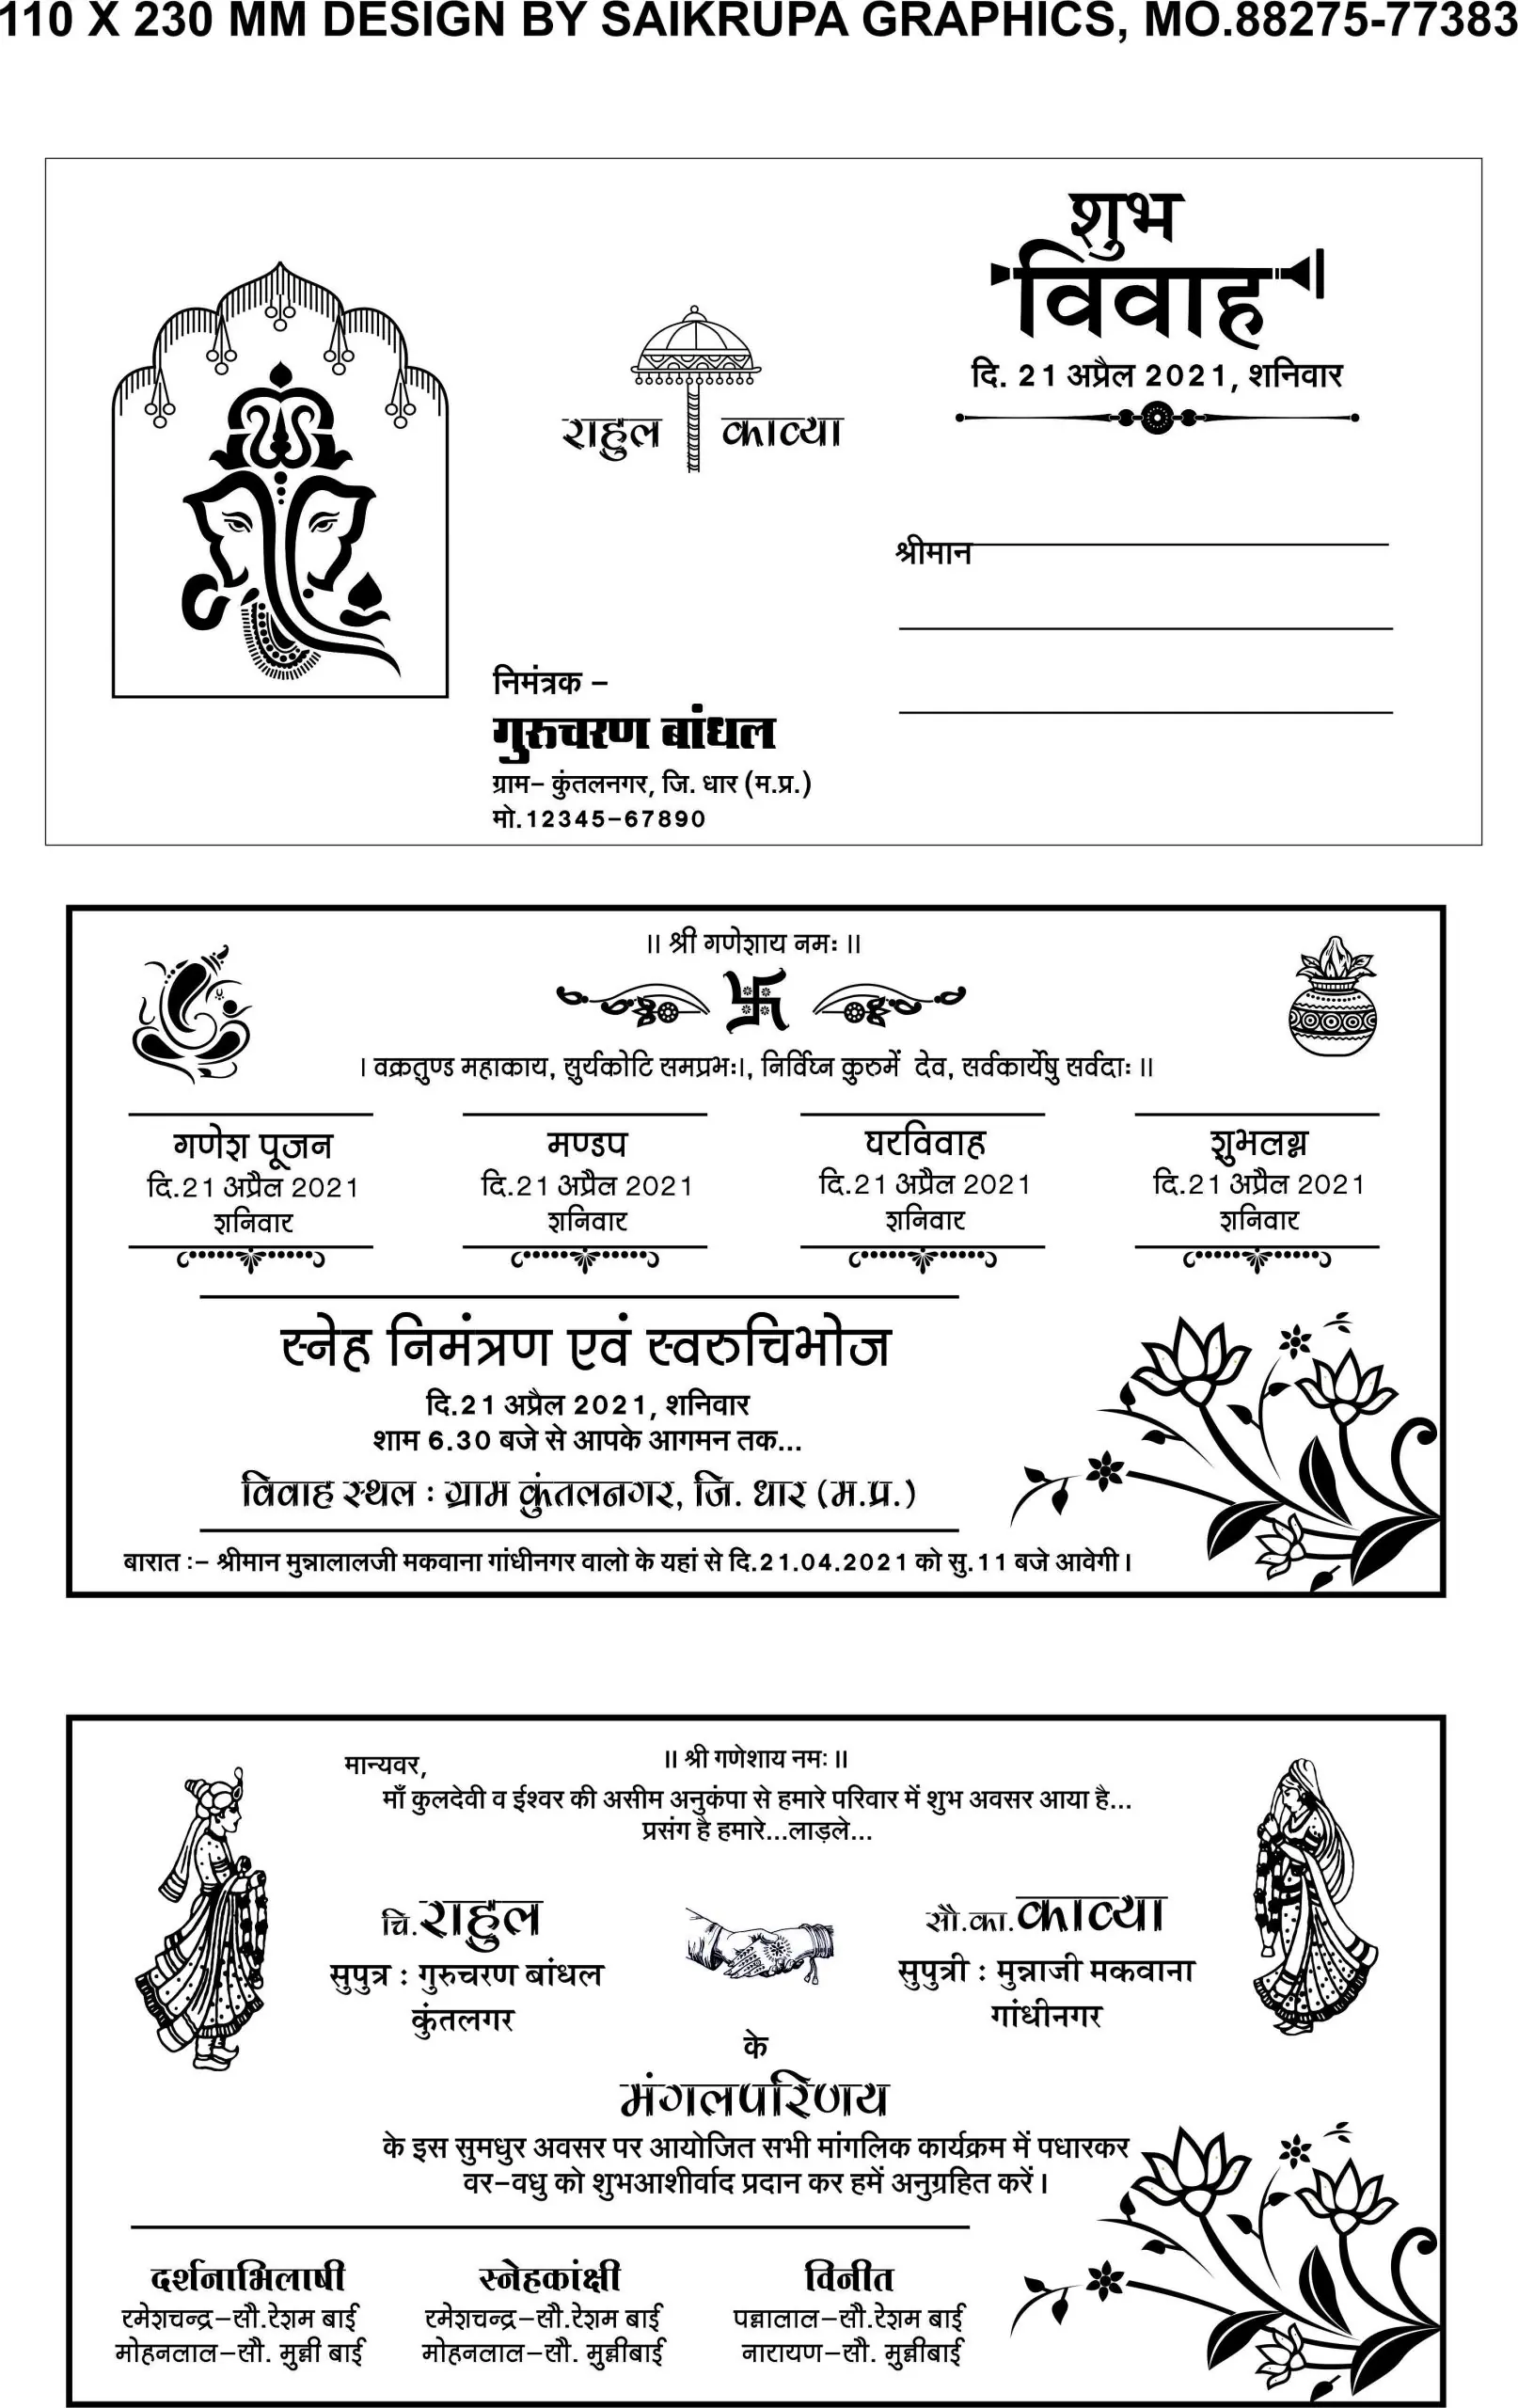 110 X 230 MM DESIGN BY SAIKRUPA GRAPHICS, MO.88275-77383
शुभ
विवाह
दि. 21 अप्रैल 2021, शनिवार
राहुल काव्या
श्रीमान
निमंत्रक –
गुरुचरण बांधल
ग्राम– कुंतलनगर, जि. धार (म.प्र.)
मो.12345-67890
॥ श्री गणेशाय नमः ॥
। वक्रतुण्ड महाकाय, सुर्यकोटि समप्रभः।, निर्विघ्न कुरुमें देव, सर्वकार्येषु सर्वदाः ॥
गणेश पूजन मण्डप घरविवाह शुभलग्न
दि.21 अप्रैल 2021 दि.21 अप्रैल 2021 दि.21 अप्रैल 2021 दि.21 अप्रैल 2021
शनिवार शनिवार शनिवार शनिवार
स्नेह निमंत्रण एवं स्वरुचिभोज
दि.21 अप्रैल 2021, शनिवार
शाम 6.30 बजे से आपके आगमन तक...
विवाह स्थल : ग्राम कुंतलनगर, जि. धार (म.प्र.)
बारात :– श्रीमान मुन्नालालजी मकवाना गांधीनगर वालो के यहां से दि.21.04.2021 को सु.11 बजे आवेगी।
॥ श्री गणेशाय नमः ॥
मान्यवर,
माँ कुलदेवी व ईश्वर की असीम अनुकंपा से हमारे परिवार में शुभ अवसर आया है...
प्रसंग है हमारे...लाड़ले...
चि.राहुल सौ.का.काव्या
सुपुत्र : गुरुचरण बांधल सुपुत्री : मुन्नाजी मकवाना
कुंतलगर गांधीनगर
के
मंगलपरिणय
के इस सुमधुर अवसर पर आयोजित सभी मांगलिक कार्यक्रम में पधारकर
वर–वधु को शुभआशीर्वाद प्रदान कर हमें अनुग्रहित करें।
दर्शनाभिलाषी स्नेहकांक्षी विनीत
रमेशचन्द्र–सौ.रेशम बाई रमेशचन्द्र–सौ.रेशम बाई पन्नालाल–सौ.रेशम बाई
मोहनलाल–सौ. मुन्नी बाई मोहनलाल–सौ. मुन्नीबाई नारायण–सौ. मुन्नीबाई